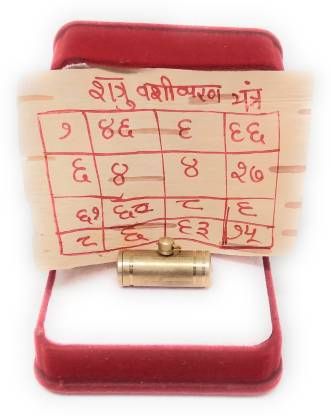 शत्रु वशीकरण यंत्र
१ ४६ ६ ६६
६ ४ ४ २७
६१ ६२ ८ ६
८ ६ ६३ १५